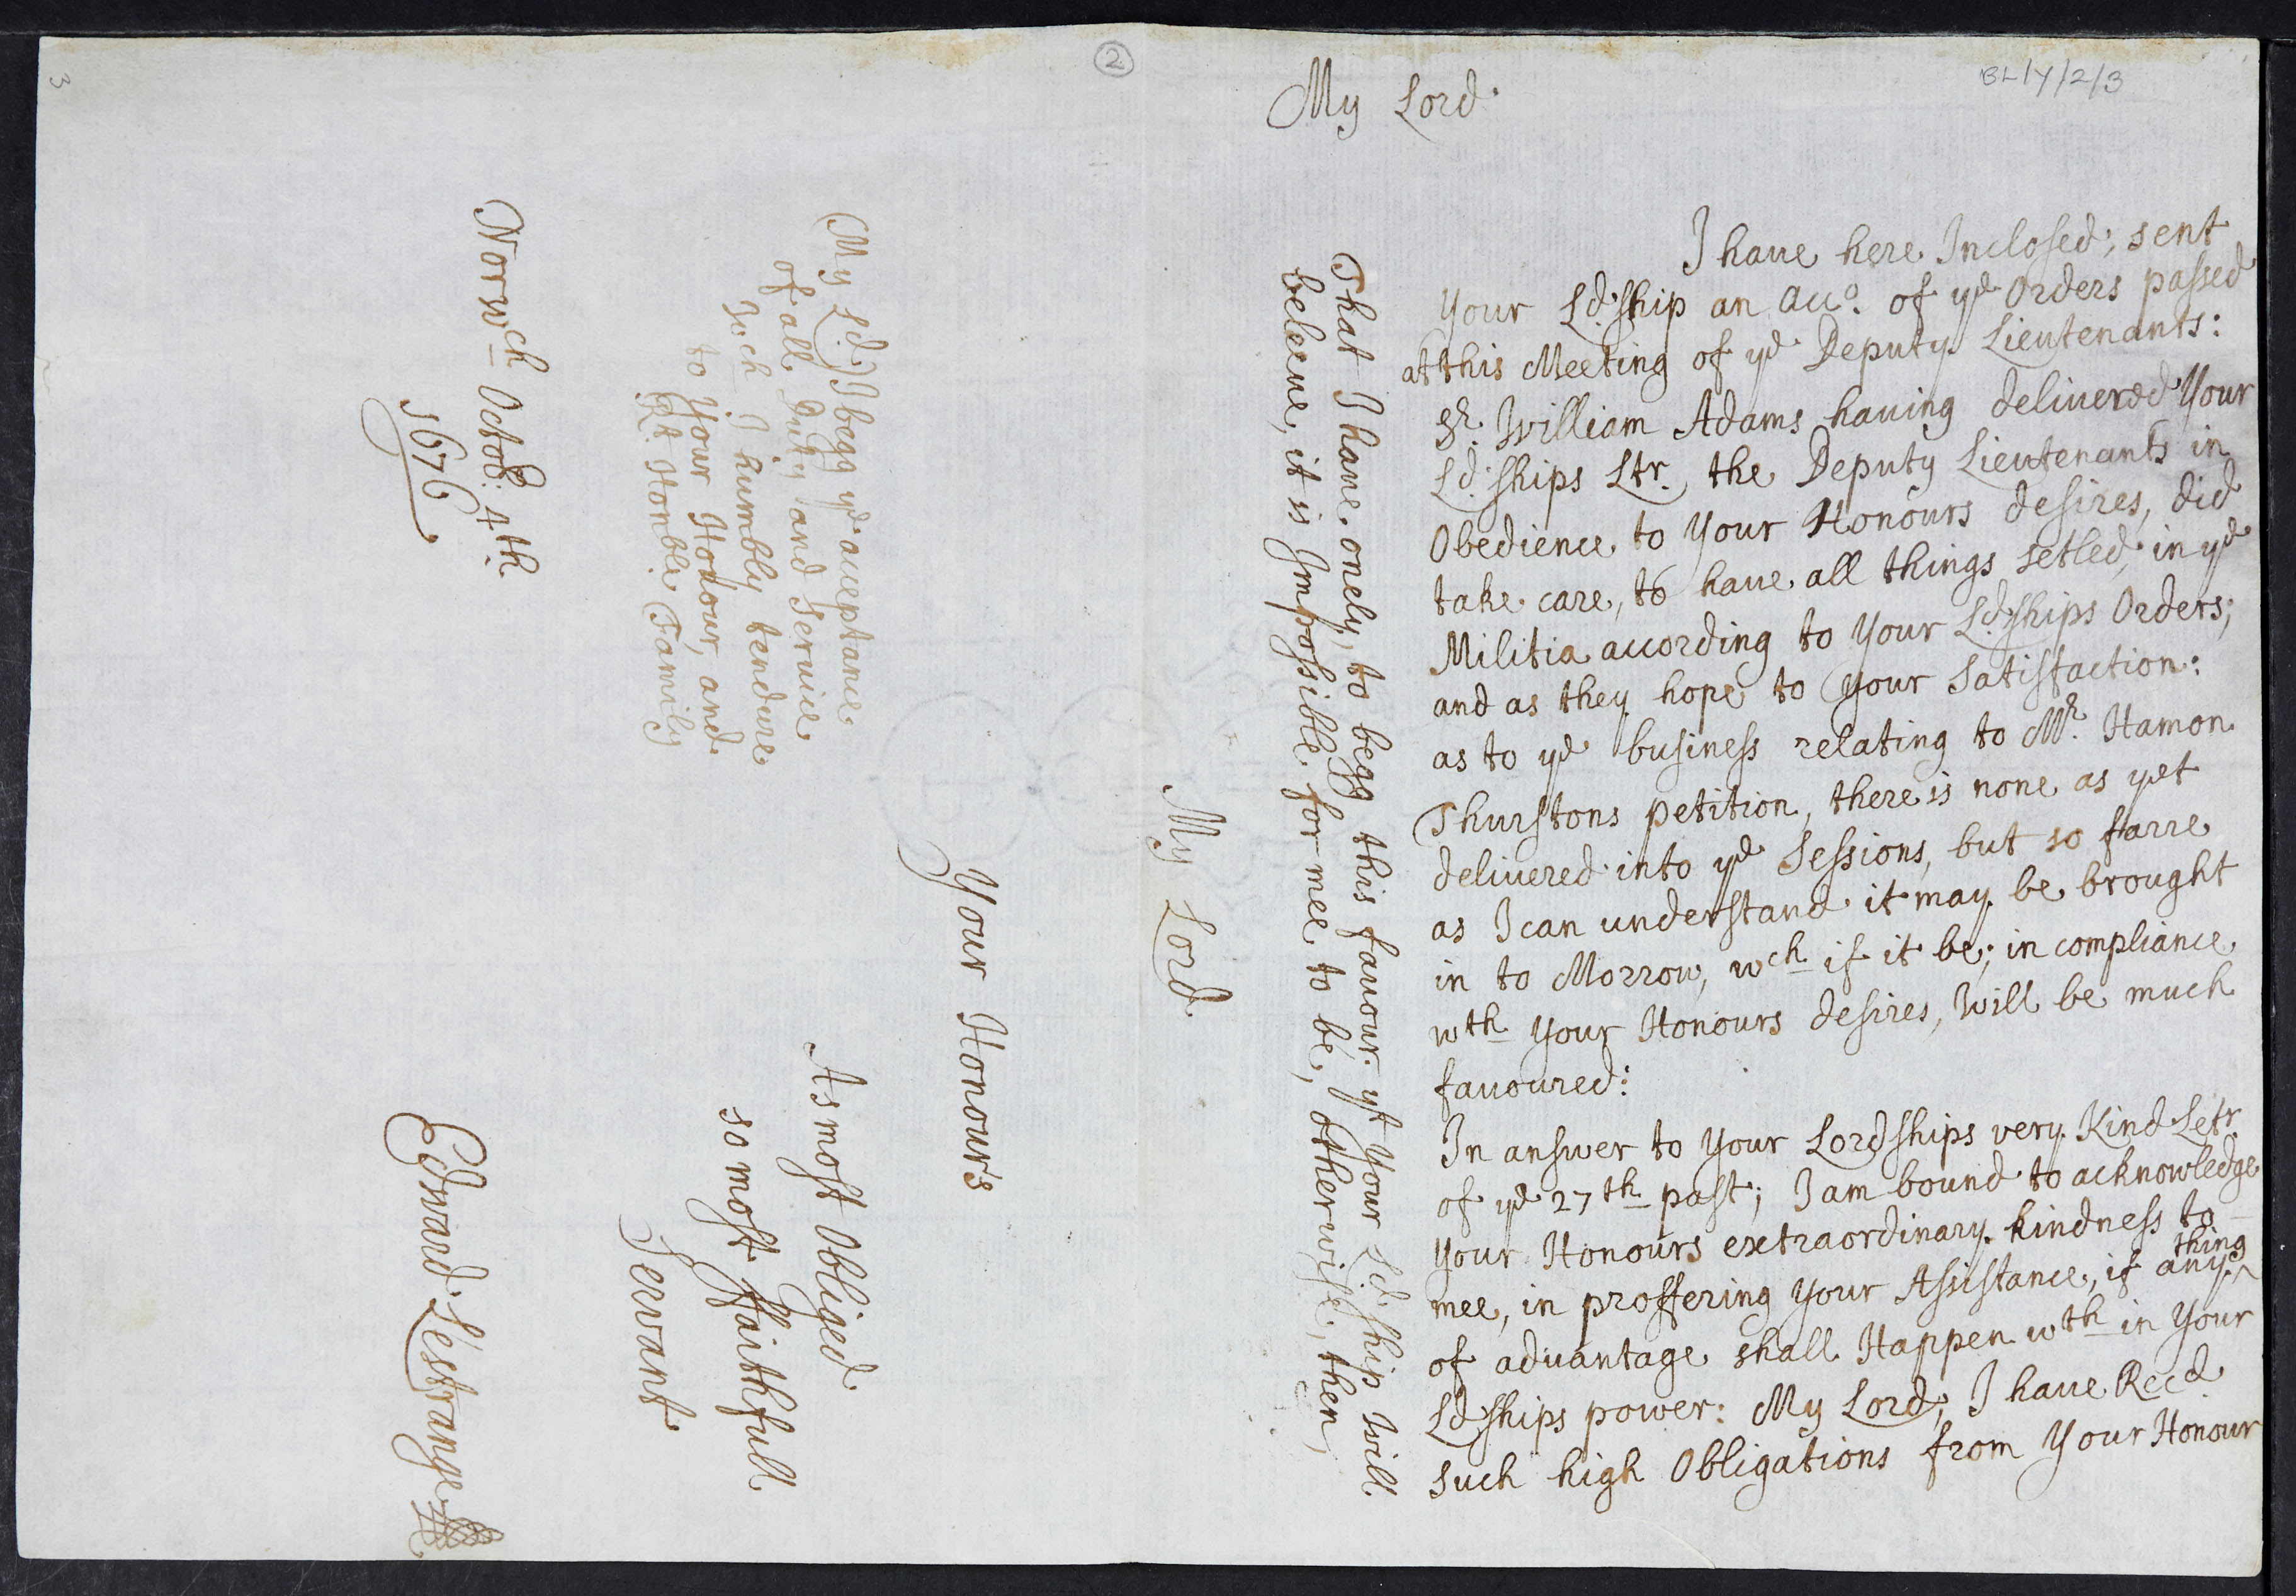 BL/Y/2/3
My Lord
I haue here Inclosed, sent
your Ld.ship an acco. of ye Orders passed
at this Meeting of ye Deputy Lieutenants:
Sr. William Adams hauing deliuered Your
Ld.ships Ltr. the Deputy Lieutenants in
Obedience to Your Honours desires, did
take care, to haue all things setled, in ye
Militia according to Your Ld.ships Orders;
and as they hope to Your Satisfaction:
as to ye business relating to Mr. Hamon
Thurstons petition, there is none as yet
deliuered into ye Sessions, but so farre
as I can understand it may be brought
in to Morrow, wch if it be; in compliance
wth Your Honours desires, Will be much
fauoured:
In answer to Your Lordships very Kind Letr.
of ye 27th past; I am bound to acknowledge
Your Honours extraordinary kindness to
mee, in proffering Your Assistance, if any thing
of advantage shall Happen wth in Your
Ld.ships power: My Lord, I haue Recd
such high Obligations from Your Honour
That I haue onely, to begg this fauour yt Your Ld.ship will
beleeue, it is Impossible for mee to be, otherwise, then,
My Lord
Your Honours
As most Obliged
so most ffaithfull
Servant
Edward L'estrange
My Ld. I begg ye acceptance
of all Duty and Seruice
Such I humbly tendure
to Your Honour, and
Rt. Honble Family
Norwch Octob: 4th.
1676
2
3